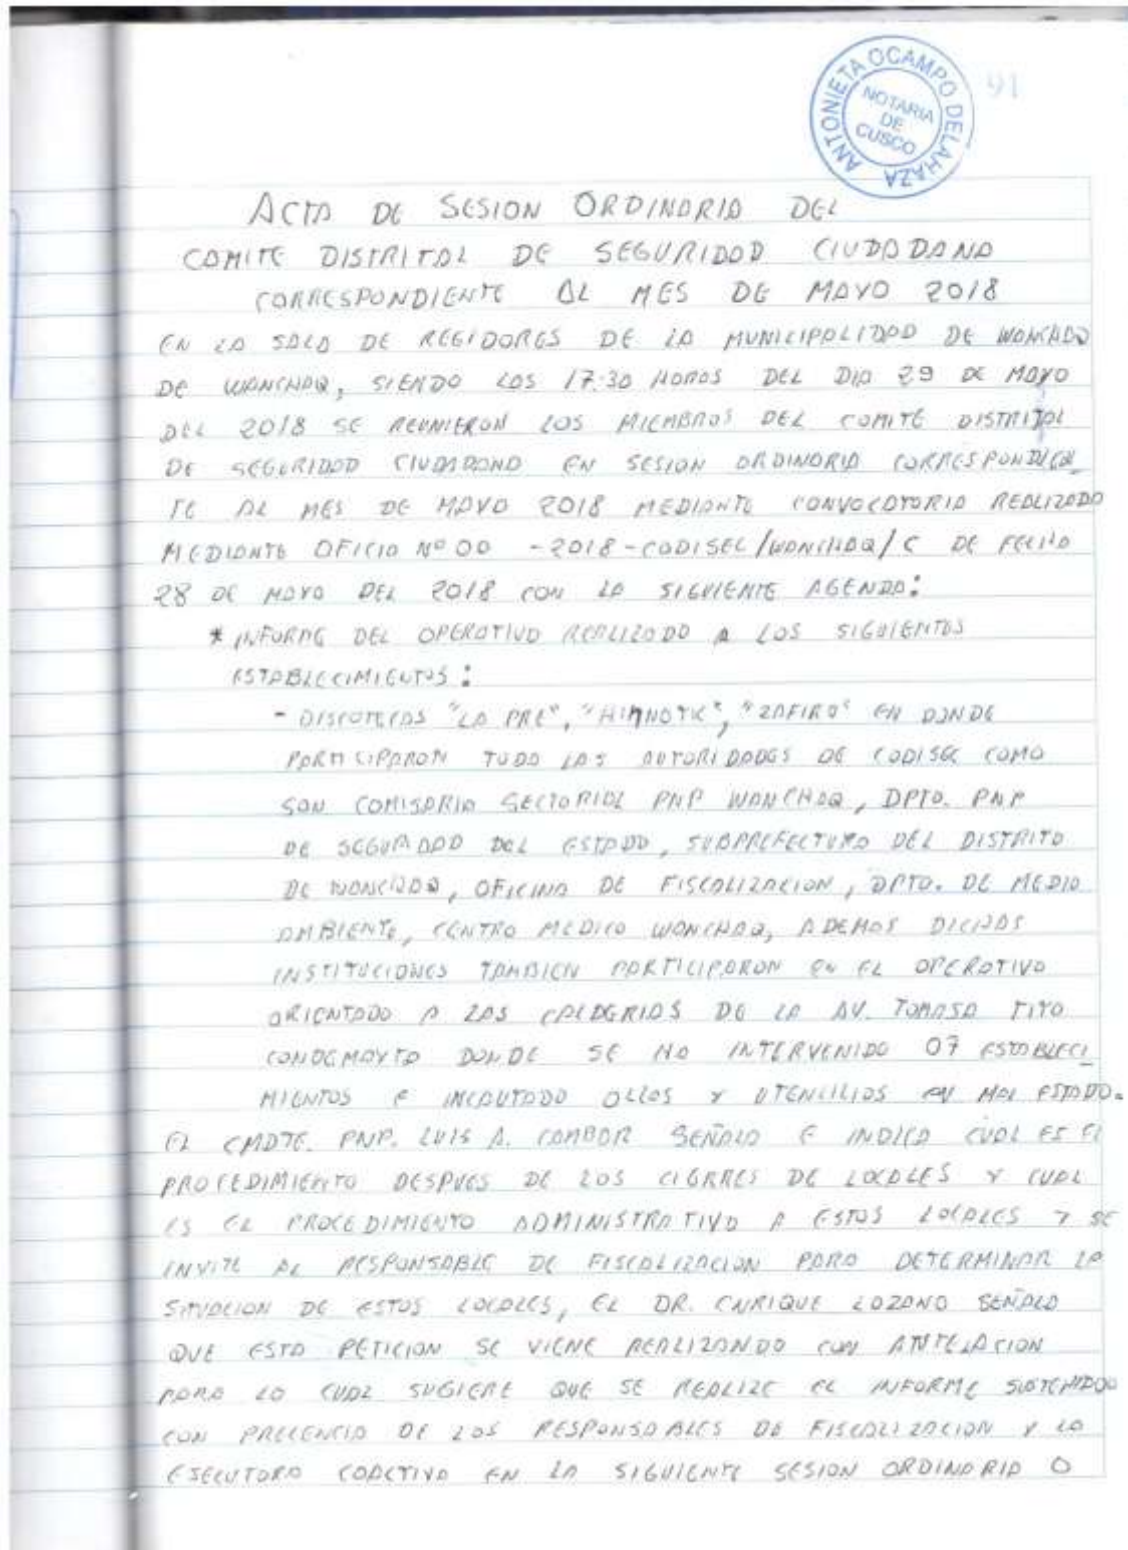 ANTONIETA OCAMPO DELAHAZA
NOTARIA
DE
CUSCO
91
ACTA DE SESION ORDINARIA DEL
COMITE DISTRITAL DE SEGURIDAD CIUDADANA
CORRESPONDIENTE AL MES DE MAYO 2018
EN LA SALA DE REGIDORES DE LA MUNICIPALIDAD DE WANCHAQ
DE WANCHAQ, SIENDO LOS 17:30 HORAS DEL DIA 29 DE MAYO
DEL 2018 SE REUNIERON LOS MIEMBROS DEL COMITE DISTRITAL
DE SEGURIDAD CIUDADANA EN SESION ORDINARIA CORRESPONDIEN_
TE AL MES DE MAYO 2018 MEDIANTE CONVOCATORIA REALIZADO
MEDIANTE OFICIO Nº 00 -2018-CODISEC/WANCHAQ/C DE FECHA
28 DE MAYO DEL 2018 CON LA SIGUIENTE AGENDA:
* INFORME DEL OPERATIVO REALIZADO A LOS SIGUIENTES
ESTABLECIMIENTOS:
- DISCOTECAS "LA PRE", "HIMNOTIC", "ZAFIRO" EN DONDE
PARTICIPARON TODO LAS AUTORIDADES DE CODISEC COMO
SON COMISARIA SECTORIAL PNP WANCHAQ, DPTO. PNP
DE SEGURIDAD DEL ESTADO, SUBPREFECTURA DEL DISTRITO
DE WANCHAQ, OFICINA DE FISCALIZACION, DPTO. DE MEDIO
AMBIENTE, CENTRO MEDICO WANCHAQ, ADEMAS DICHAS
INSTITUCIONES TAMBIEN PARTICIPARON EN EL OPERATIVO
ORIENTADO A LAS CALDERIAS DE LA AV. TOMASA TITO
CONDEMAYTA DONDE SE HA INTERVENIDO 07 ESTABLECI_
MIENTOS E INCAUTADO OLLAS Y UTENCILIOS EN MAL ESTADO.
EL CMDTE. PNP. LUIS A. SEÑALA E INDICA CUAL ES EL
PROCEDIMIENTO DESPUES DE LOS CIERRES DE LOCALES Y CUAL
ES EL PROCEDIMIENTO ADMINISTRATIVO A ESTOS LOCALES Y SE
INVITE AL RESPONSABLE DE FISCALIZACION PARA DETERMINAR LA
SITUACION DE ESTOS LOCALES, EL DR. ENRIQUE LOZANO SEÑALA
QUE ESTA PETICION SE VIENE REALIZANDO CON ANTELACION
PARA LO CUAL SUGIERE QUE SE REALIZE EL INFORME SOSTENIDO
CON PRECENCIA DE LOS RESPONSABLES DE FISCALIZACION Y LA
ESECUTORA COACTIVA EN LA SIGUIENTE SESION ORDINARIA O